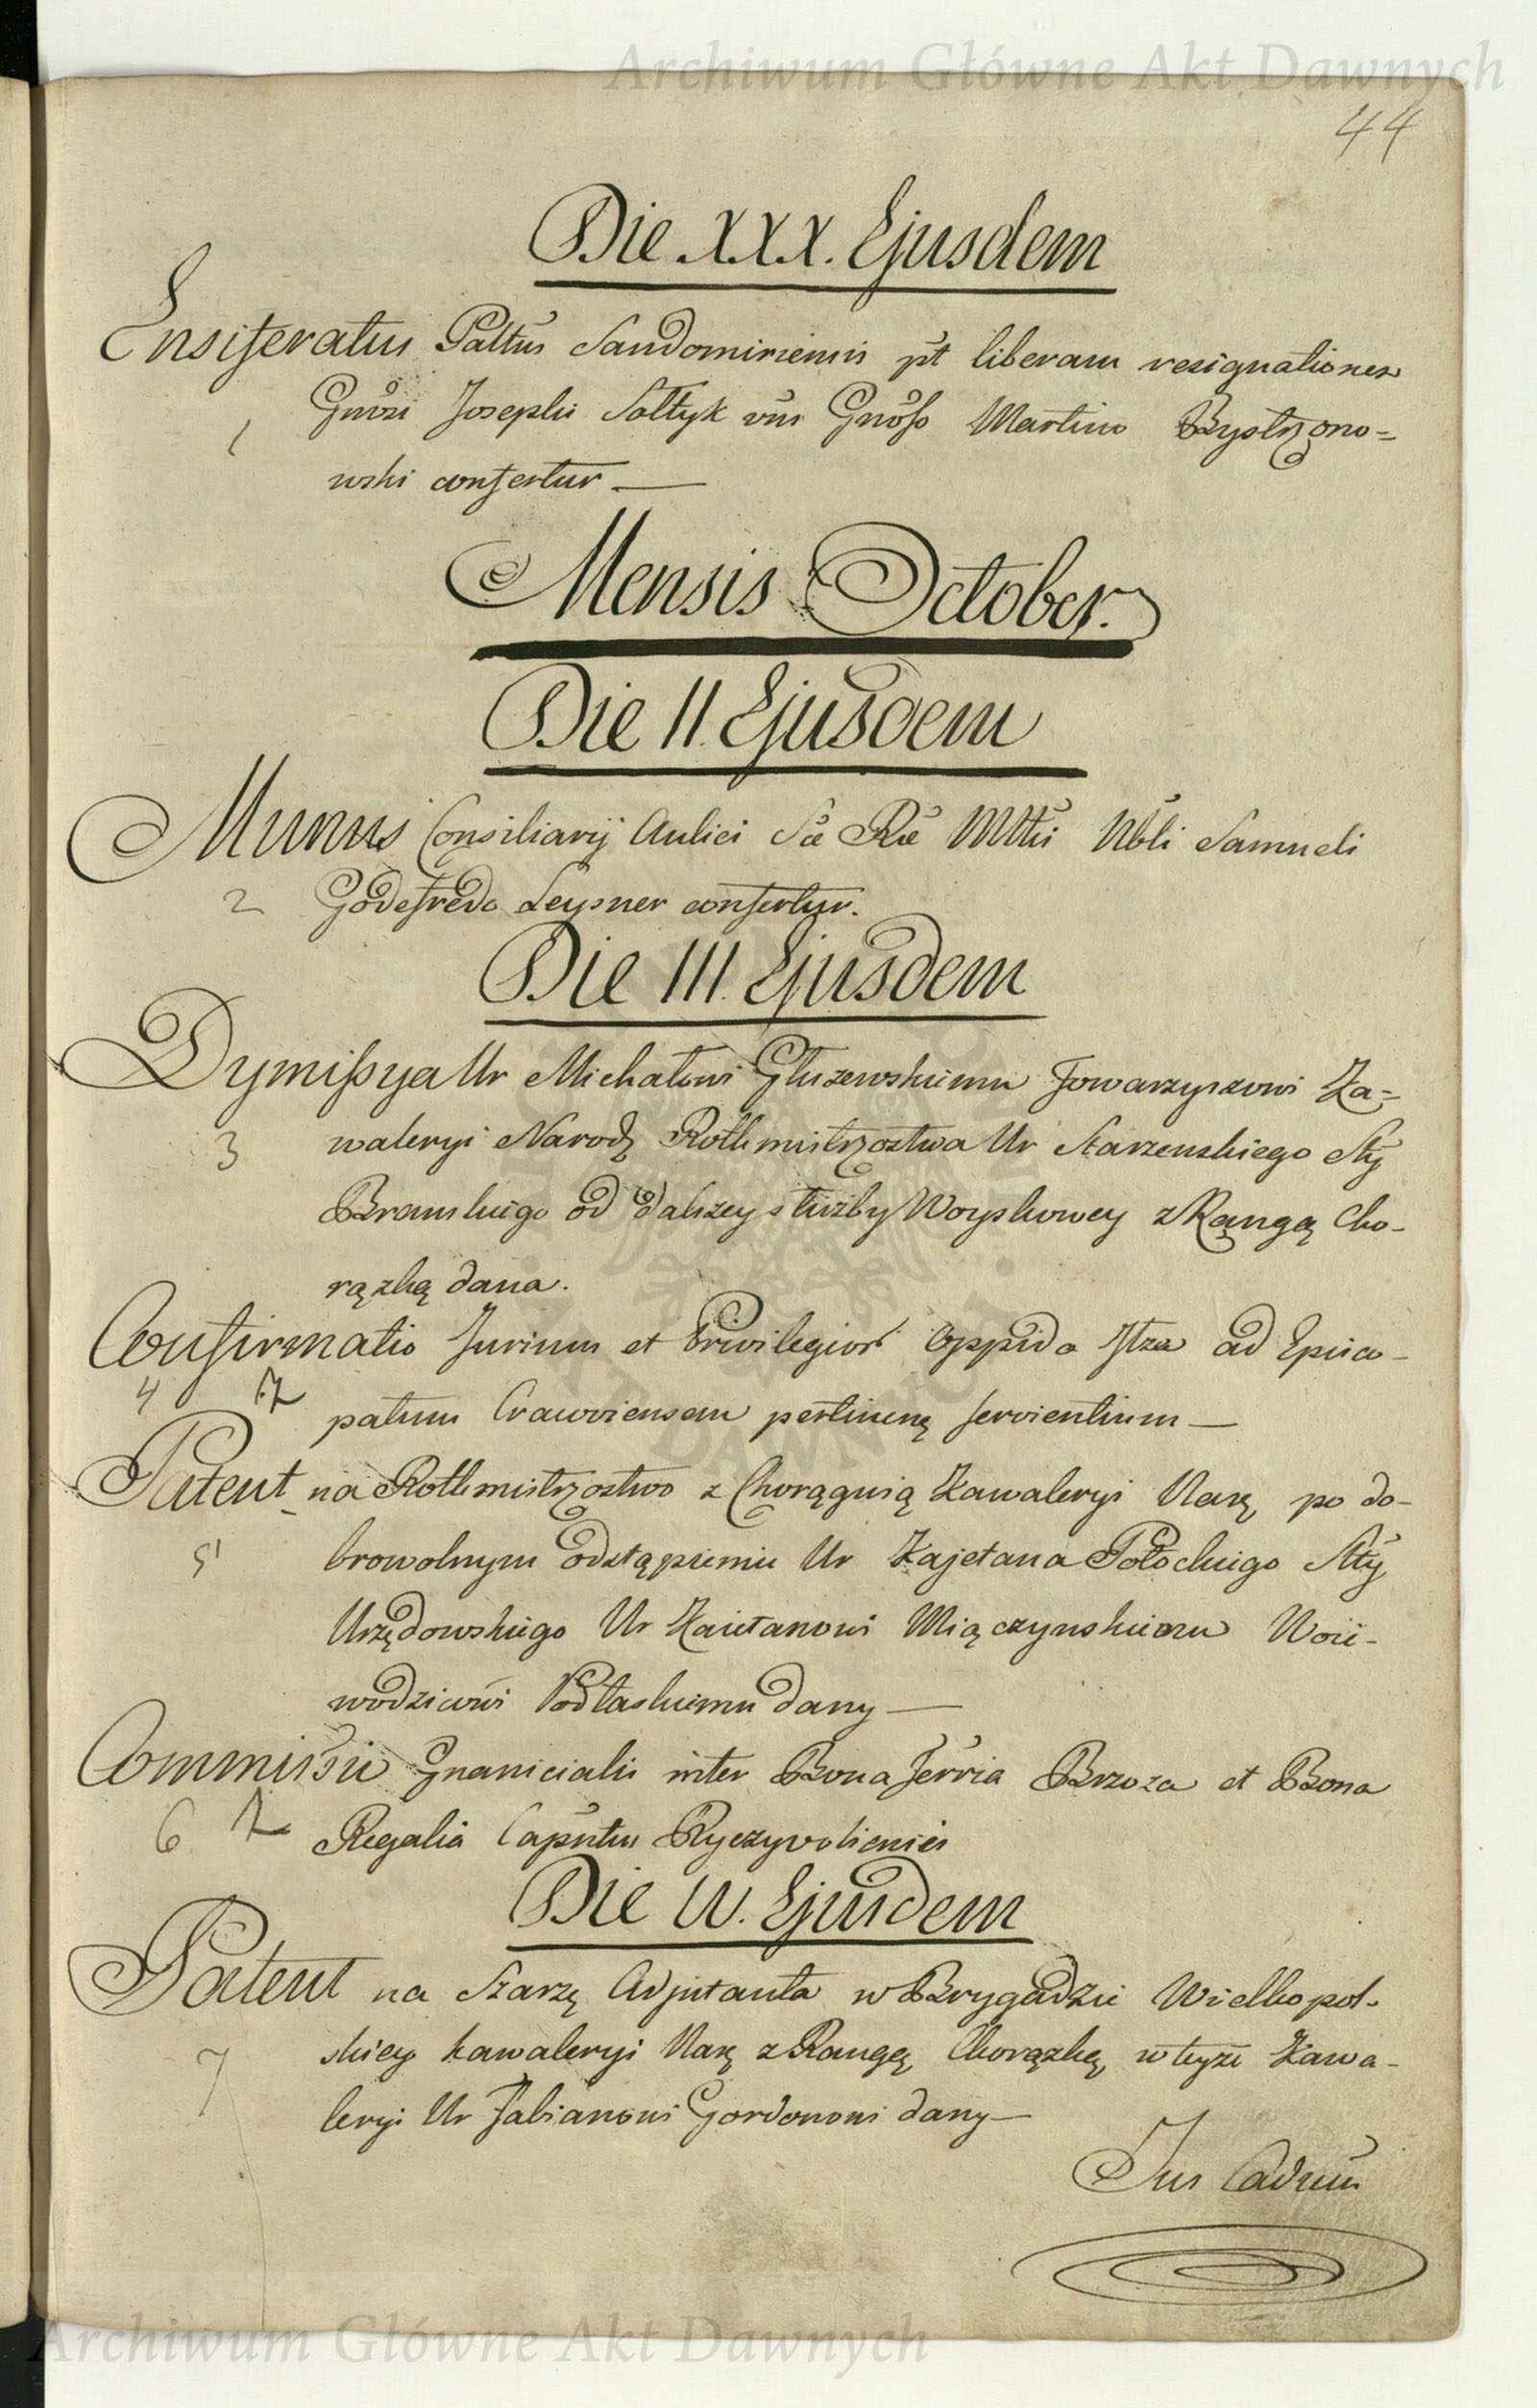 Archiwum Główne Akt Dawnych
44
Die XXX. Ejusdem
Ensiferatus Pałtus Sandomiriensis pt liberam resignationem
1 Gnosi Josephi Sołtyk vni Gnoso Martino Bystrzono=
wski confertur —
Mensis October.
Die II. Ejusdem
Munus Consiliarij Aulici Sæ Ræ Mttis Nbli Samueli
2 Godefredo Leysner confertur.
Die III. Ejusdem
Dymissya Ur Michałowi Głuzewskiemu Towarzyszowi Ka=
3 waleryi Narod Rothmistrzostwa Ur Starzenskiego Stty
Branskiego od dalszey służby Woyskowey z Rangą Cho-
rązką dana.
Confirmatio Jurium et Privilegior Oppido Jłza ad Episco-
4 patum Cracoviensem pertinen servientium —
Patent na Rothmistrzostwo z Chorągwią Kawaleryi Nar po do-
5 browolnym odstąpieniu Ur Kajetana Potockiego Stty
Urzędowskiego Ur Kaietanowi Miączynskiemu Woie-
wodzicowi Podlaskiemu dany —
Commissio Granicialis inter Bona Terria Brzoza et Bona
6 Regalia Capntus Ryczywoliensis
Die IV. Ejusdem
Patent na Szarzę Adjutanta w Brygadzie Wielkopol-
7 skiey kawaleryi Nar z Rangą Chorązką w teyze Kawa-
leryi Ur Fabianowi Gordonowi dany —
Jus Cadum
Archiwum Główne Akt Dawnych